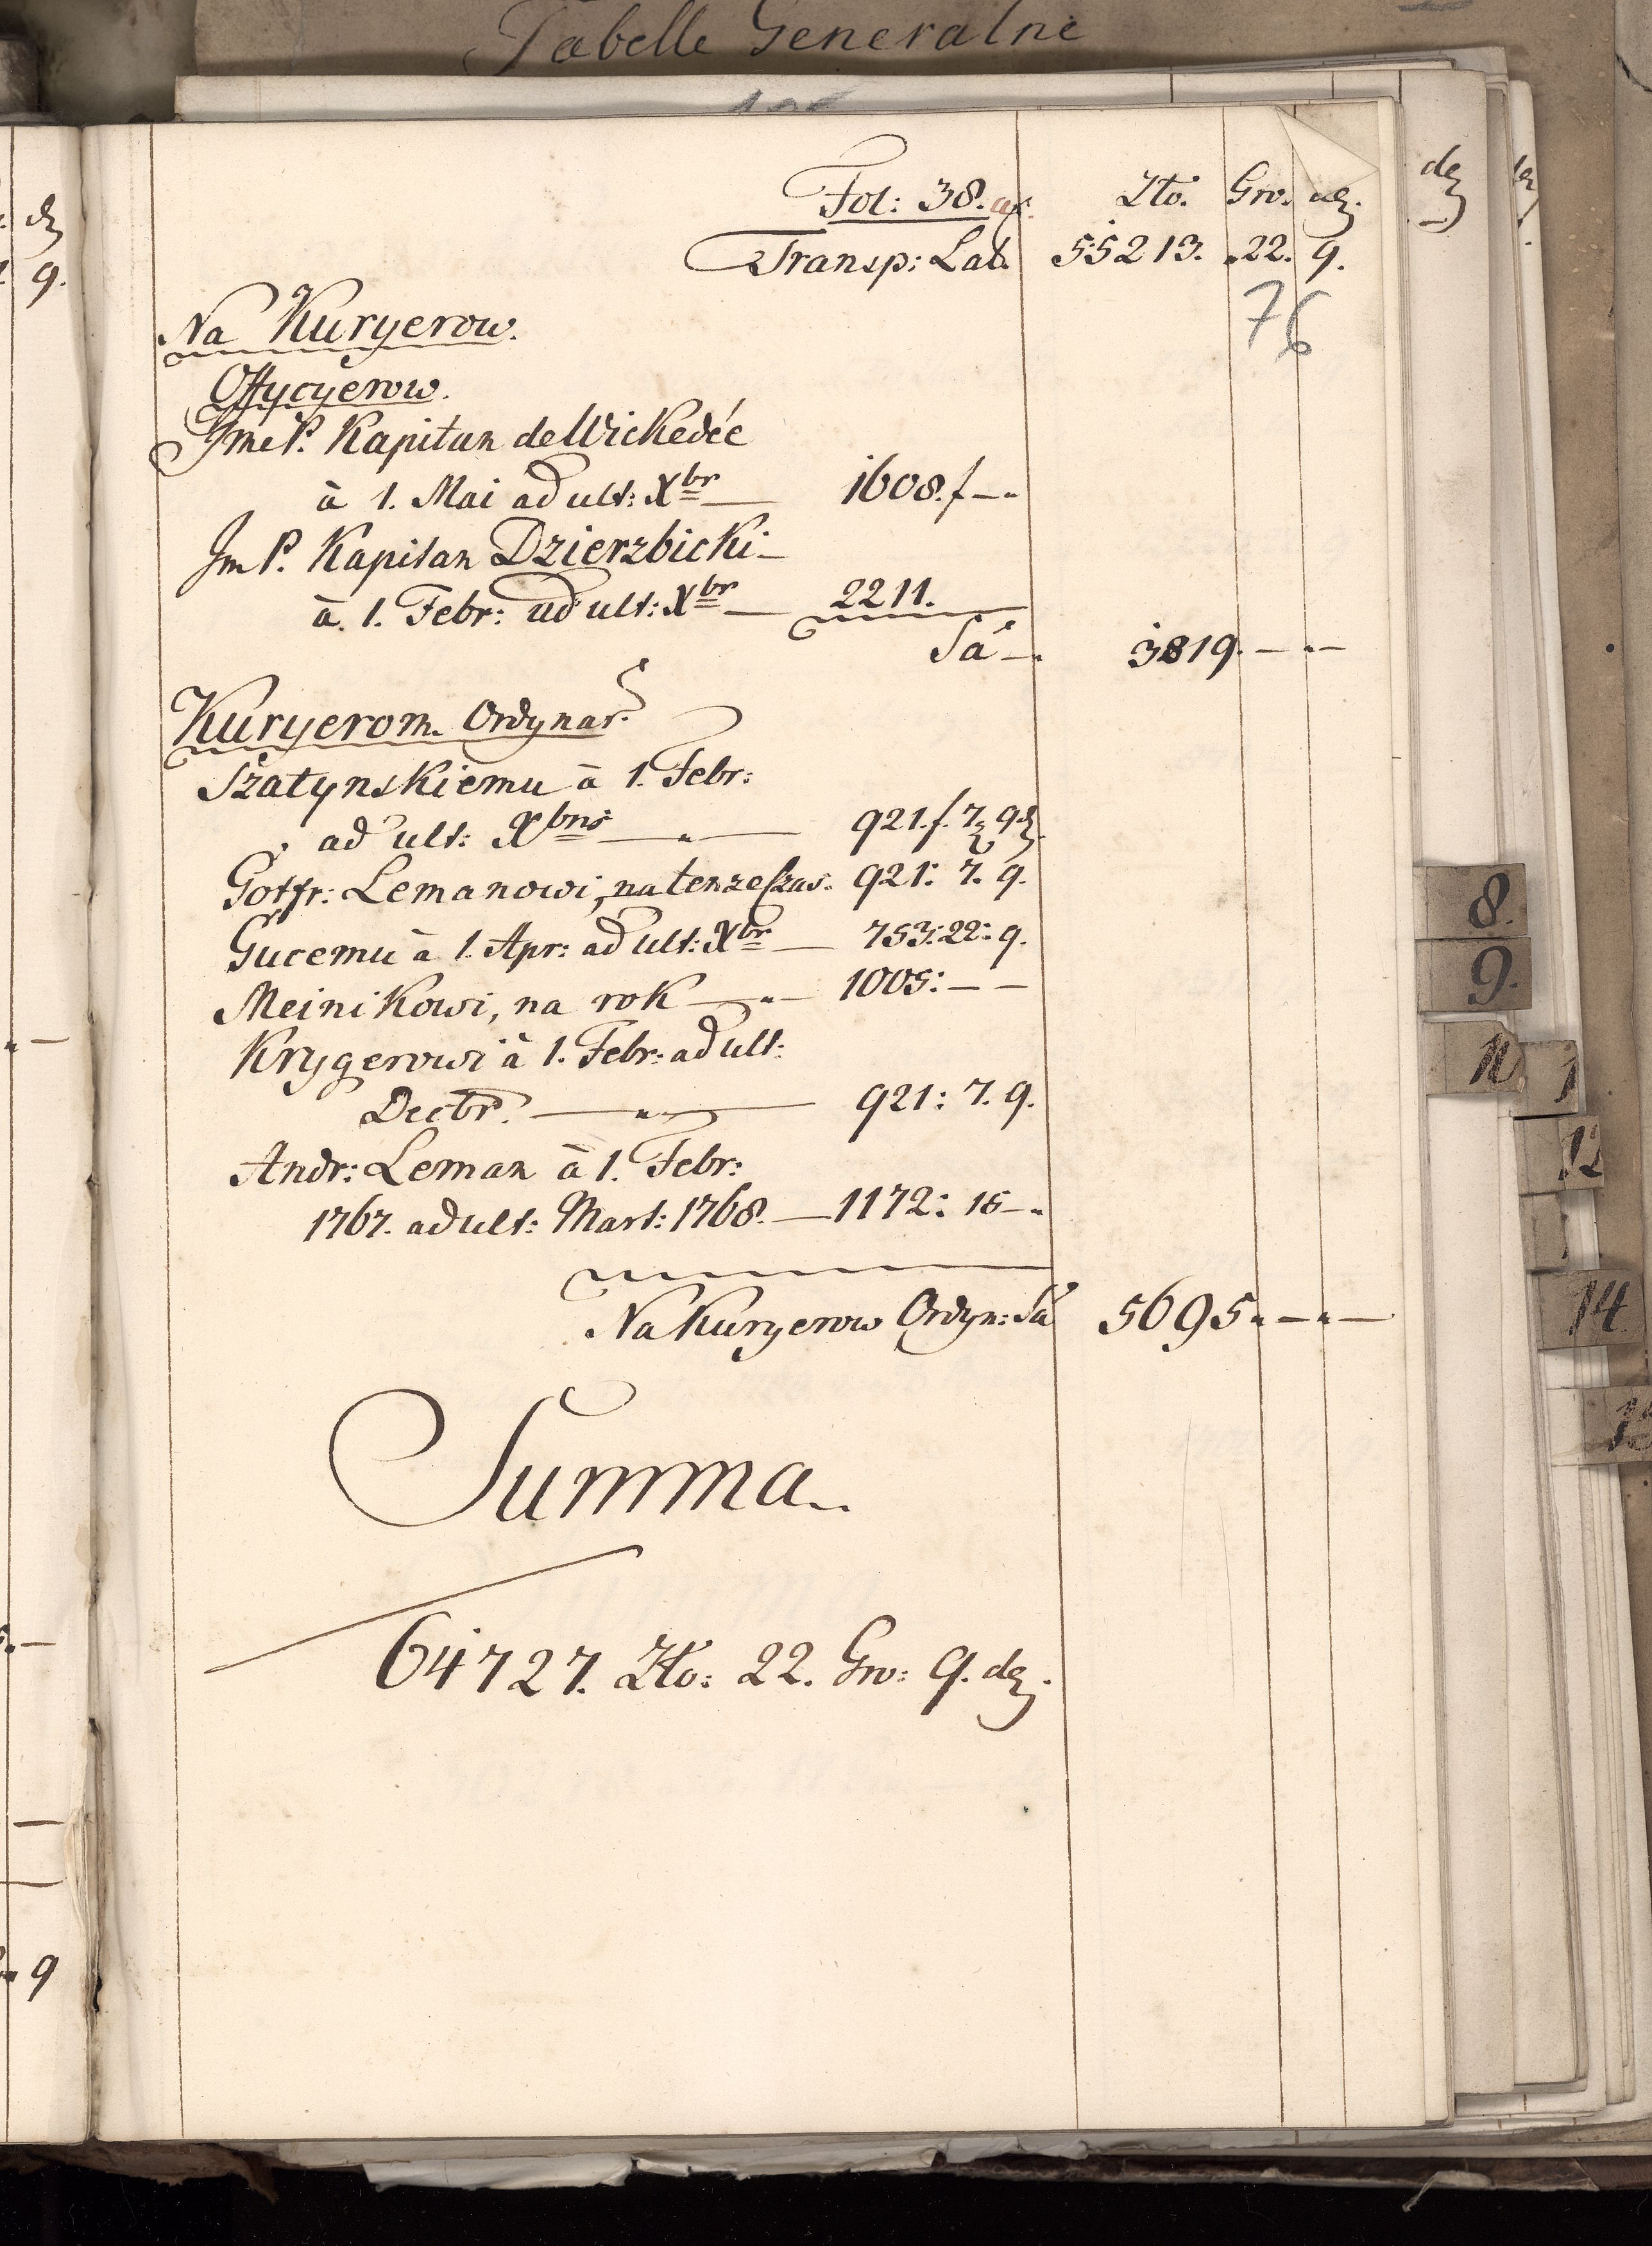 Tabelle Generalne
Fol: 38. Zło. Gro. dę.
Transp: Lat. 55213. 22. 9.
76
Na Kuryerow.
Offycyerow.
Jme P. Kapitan de Wickedée
à 1. Mai ad ult: Xbr — 1608. f — „
Jm P. Kapitan Dzierzbicki —
à 1. Febr: ad ult: Xbr — 2211.
Sa — „ 3819. — „ —
Kuryerom Ordynar.
Szatynskiemu à 1. Febr:
ad ult: Xbris — „ — 921. f. 7. 9 d.
Gotfr: Lemanowi, na tenze czas. 921: 7. 9.
Gucemu à 1. Apr: ad ult: Xbr — 753: 22: 9.
Meinikowi, na rok — „ — 1005: — —
Krygerowi à 1. Febr: ad ult:
Decbr. — „ — 921: 7. 9.
Andr: Leman à 1. Febr:
1767. ad ult: Mart: 1768. — 1172: 15 — „
Na Kuryerow Ordyn: Sa 5695 „ — „ —
Summa
64727. Zło: 22. Gro: 9. dę.
8.
9.
11
12
14